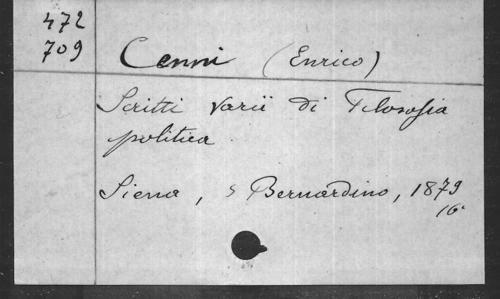 472
709
Cenni (Enrico)
Scritti varii di Filosofia
politica.
Siena, S Bernardino, 1879
16°